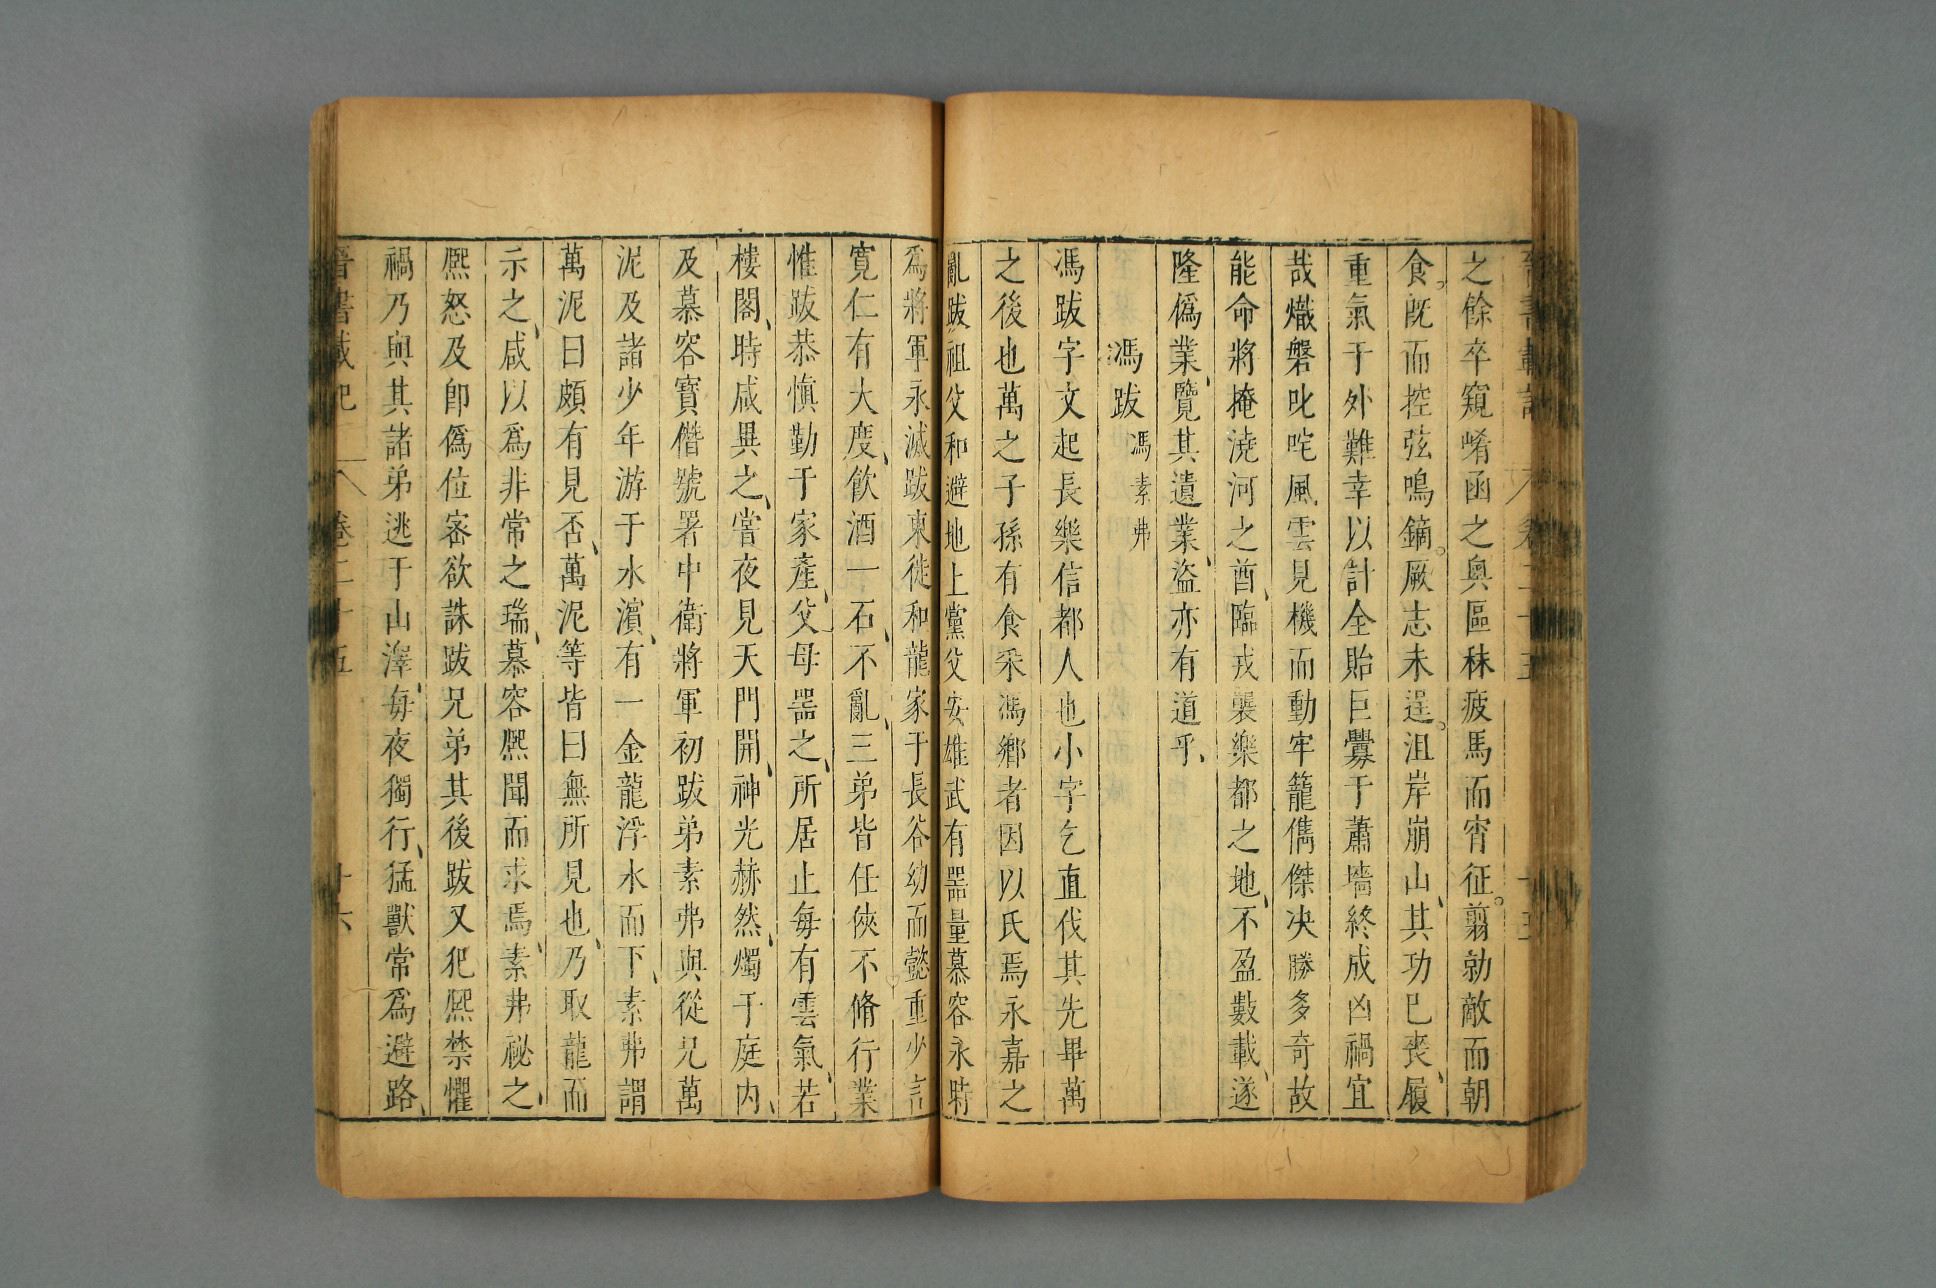 晉書載記 卷二十五 十五
之餘卒窺崤函之奧區秣疲馬而宵征。翦勍敵而朝
食。既而控弦鳴鏑。厥志未逞。沮岸崩山、其功已喪、履
重氣于外難幸以計全貽巨釁于蕭墻終成凶禍宜
哉熾磐叱咤風雲見機而動牢籠儁傑决勝多奇故
能命將掩澆河之酋、臨戎襲樂都之地、不盈數載、遂
隆僞業、覽其遺業、盜亦有道乎、
馮跋 馮素弗
馮跋字文起長樂信都人也小字乞直伐其先畢萬
之後也萬之子孫有食采馮鄉者因以氏焉永嘉之
亂跋祖父和避地上黨父安雄武有器量慕容永時
爲將軍永滅跋東徙和龍家于長谷幼而懿重少言
寬仁有大度、飲酒一石、不亂、三弟皆任俠不脩行業
惟跋恭愼勤于家產、父母器之、所居上每有雲氣、若
樓閣、時咸異之、嘗夜見天門開、神光赫然、燭于庭内、
及慕容寶僭號署中衛將軍初跋弟素弗與從兄萬
泥及諸少年游于水濱、有一金龍浮水而下、素弗謂
萬泥曰頗有見否、萬泥等皆曰無所見也、乃取龍而
示之、咸以爲非常之瑞、慕容熙聞而求焉、素弗祕之、
熙怒及卽僞位密欲誅跋兄弟其後跋又犯熙禁懼
禍乃與其諸弟逃于山澤、每夜獨行、猛獸常爲避路、
晉書載記 卷二十五 十六